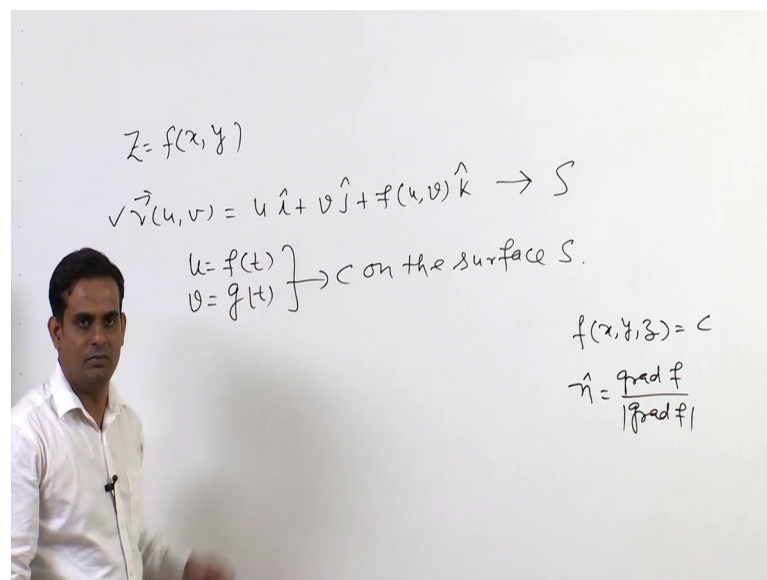 Z = f(x, y)
✓ r⃗(u, v) = u î + v ĵ + f(u, v) k̂ → S
u = f(t)
v = g(t) } → C on the surface S.
f(x, y, z) = c
n̂ = grad f / |grad f|